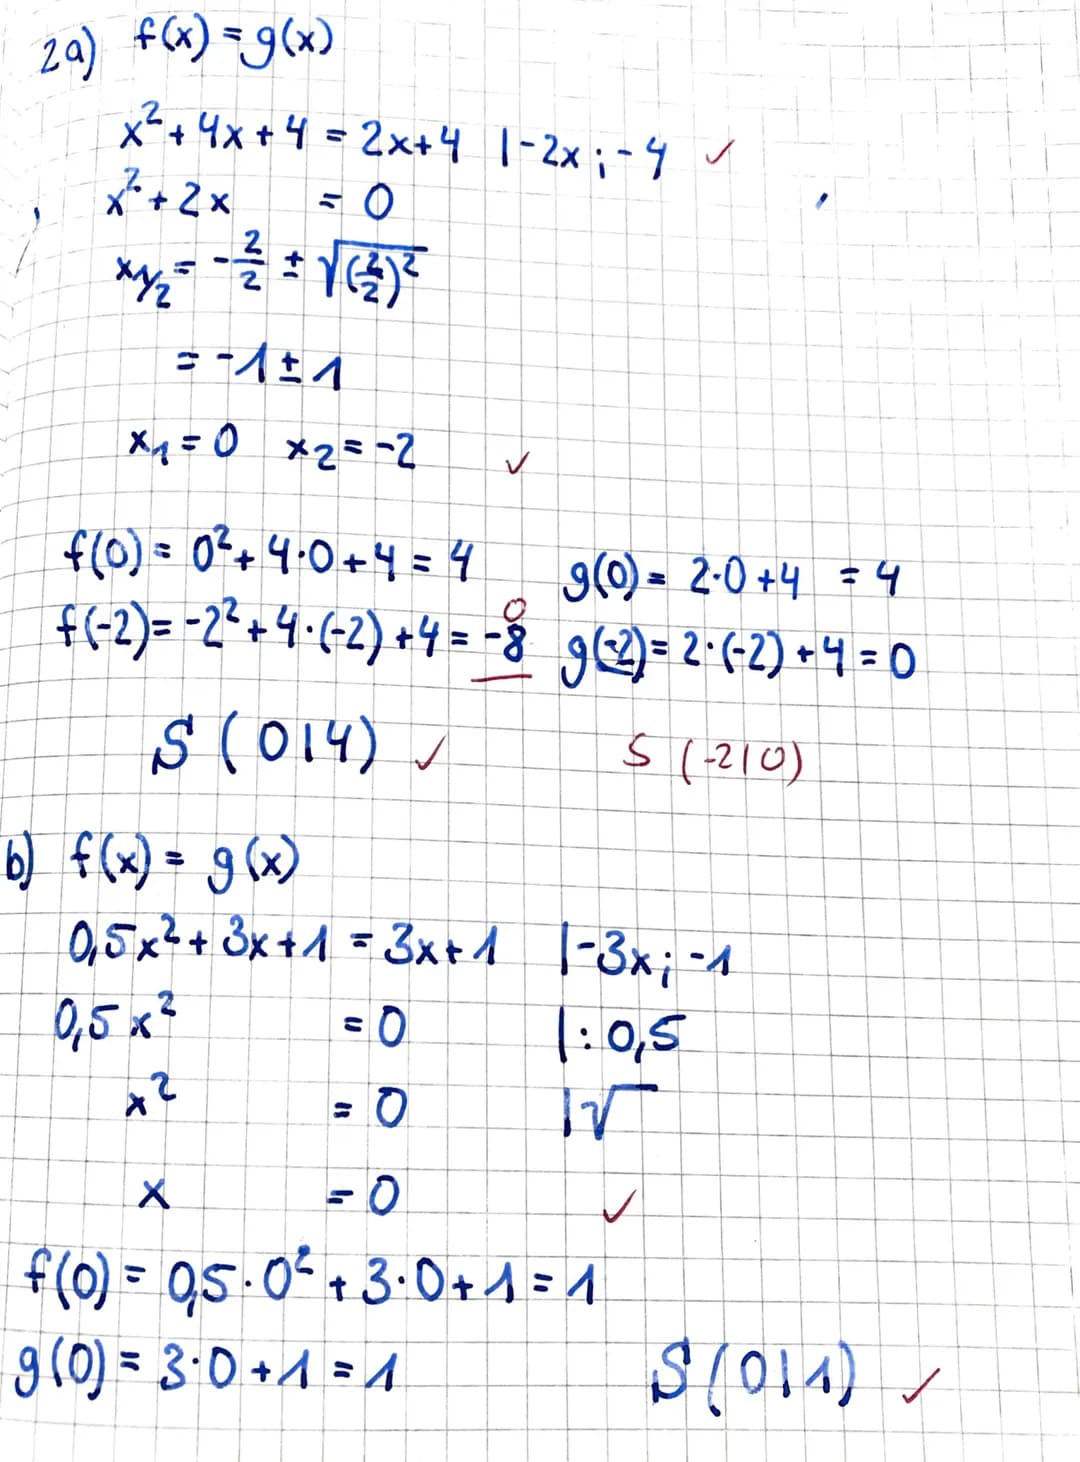 2a) f(x) = g(x)
x² + 4x + 4 = 2x + 4 | -2x ; -4 ✓
x² + 2x = 0
x1/2 = -2/2 ± √(2/2)²
= -1 ± 1
x₁ = 0 x₂ = -2 ✓
f(0) = 0² + 4·0 + 4 = 4 g(0) = 2·0 + 4 = 4
0
f(-2) = -2² + 4·(-2) + 4 = -8 g(-2) = 2·(-2) + 4 = 0
S (0|4) ✓ S (-2|0)
b) f(x) = g(x)
0,5x² + 3x + 1 = 3x + 1 | -3x ; -1
0,5x² = 0 | : 0,5
x² = 0 | √
x = 0 ✓
f(0) = 0,5·0² + 3·0 + 1 = 1
g(0) = 3·0 + 1 = 1 S (0|1) ✓